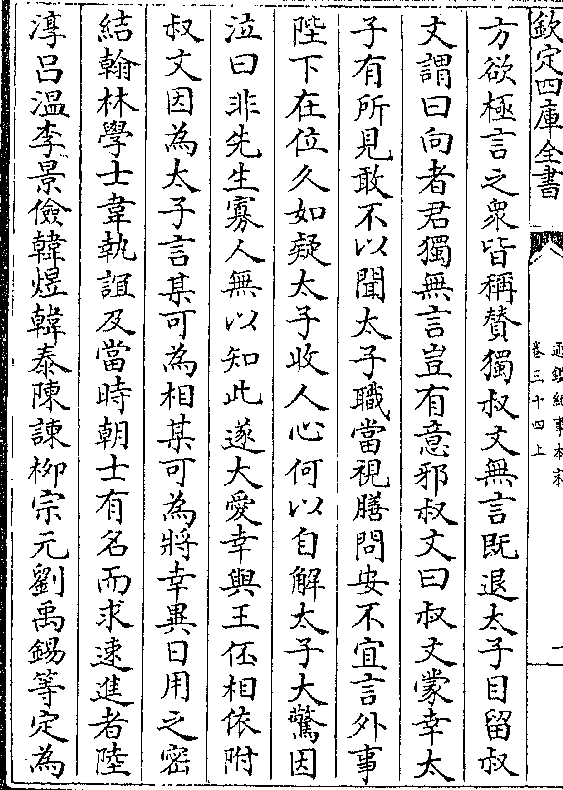 欽定四庫全書
通鑑紀事本末
卷三十四上
方欲極言之衆皆稱賛獨叔文無言既退太子目留叔
文謂曰向者君獨無言豈有意邪叔文曰叔文蒙幸太
子有所見敢不以聞太子職當視膳問安不宜言外事
陛下在位久如疑太子收人心何以自解太子大驚因
泣曰非先生寡人無以知此遂大愛幸與王伾相依附
叔文因為太子言某可為相某可為將幸異日用之密
結翰林學士韋執誼及當時朝士有名而求速進者陸
淳吕温李景儉韓煜韓泰陳諫柳宗元劉禹錫等定為